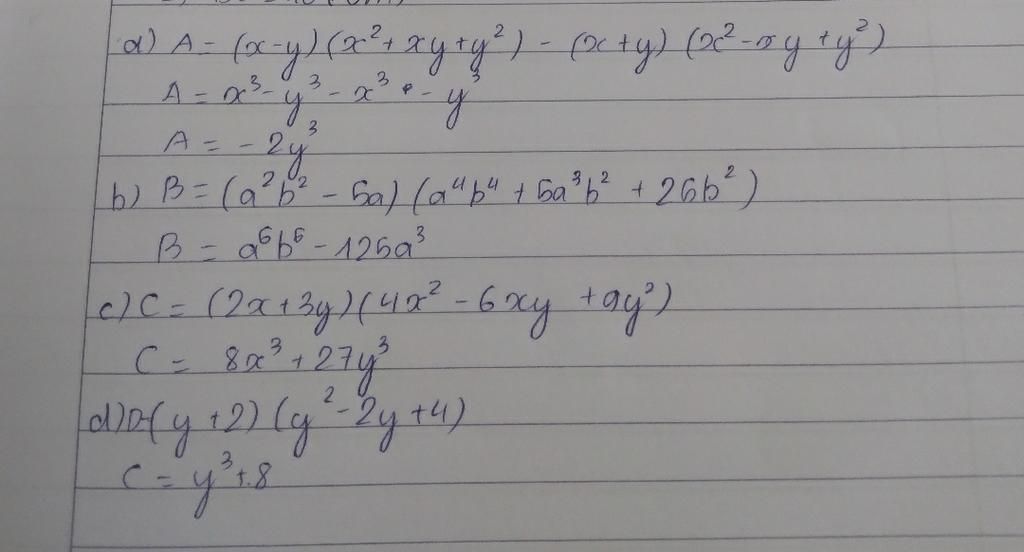 a) A = (x-y)(x² + xy + y²) - (x+y)(x² - xy + y²)
A = x³ - y³ - x³ - y³
A = - 2y³
b) B = (a²b² - 5a)(a⁴b⁴ + 5a³b² + 25b²)
B = a⁶b⁶ - 125a³
c) C = (2x + 3y)(4x² - 6xy + 9y²)
C = 8x³ + 27y³
d) D=(y + 2)(y² - 2y + 4)
C = y³ + 8